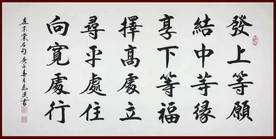 發上等願
結中等緣
享下等福
擇高處立
尋平處住
向寬處行
左宗棠名句